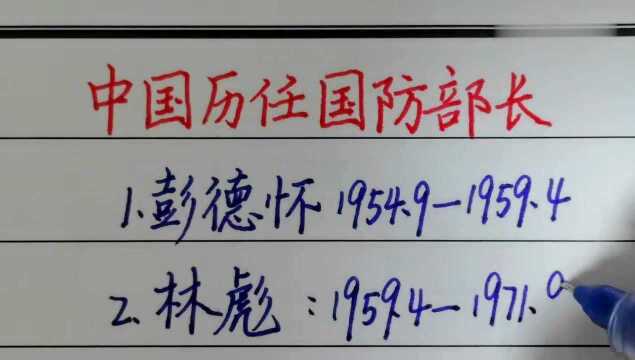 中国历任国防部长
1.彭德怀 1954.9—1959.4
2.林彪:1959.4—1971.